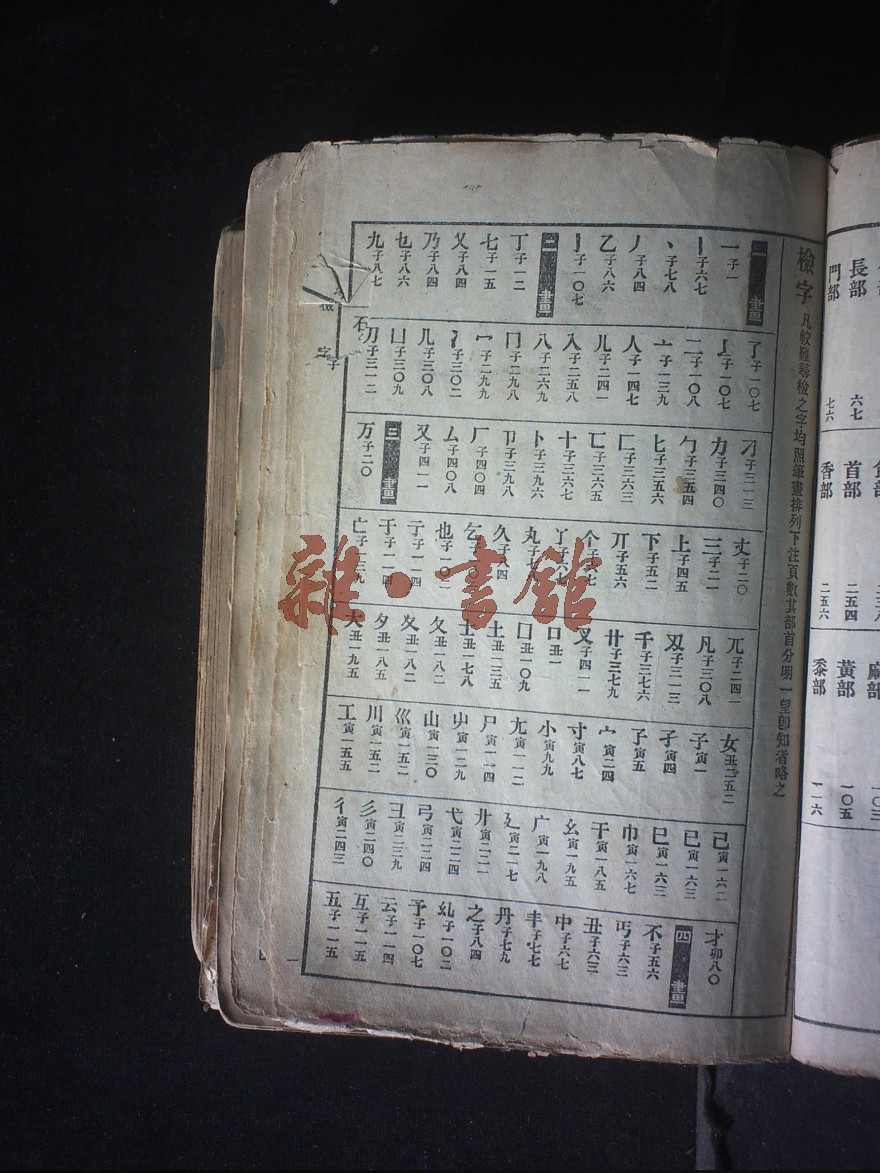 檢字 凡較難尋檢之字均照筆畫排列下注頁數其部首分明一望卽知者略之
一畫
一子一
丨子六七
丶子七八
丿子八四
乙子八六
亅子一〇七
二畫
丁子一二
七子一五
乂子八四
乃子八四
乜子八六
九子八七
了子一〇七
二子一〇八
亠子一三九
人子一四七
儿子二四一
入子二五八
八子二六九
冂子二九八
冖子二九九
冫子三〇二
几子三〇八
凵子三〇九
刀子三一二
刁子三一三
力子三四〇
勹子三五四
匕子三五六
匚子三六三
匸子三六五
十子三六七
卜子三九六
卩子三九八
厂子四〇四
厶子四〇八
又子四一一
三畫
万子二〇
丈子二〇
三子二一
上子四五
下子五二
丌子五六
个子六七
丫子六七
丸子七
久子八四
乞子
也子一〇一
亍子一一四
于子一一四
亡子一三九
兀子二四一
凡子三〇八
刄子三一三
千子三七六
廿子三七九
叉子四一一
口丑一
囗丑一〇九
土丑一三五
士丑一七八
夂丑一八二
夊丑一八二
夕丑一八五
大丑一九五
女丑二五二
子寅一
孑寅四
孒寅五
宀寅二四
寸寅八七
小寅九九
尢寅一一二
尸寅一一四
屮寅一二九
山寅一三〇
巛寅一五二
川寅一五二
工寅一五五
己寅一六二
已寅一六三
巳寅一六三
巾寅一六七
干寅一八五
幺寅一九五
广寅一九八
廴寅二一七
廾寅二二一
弋寅二二四
弓寅二二四
彐寅二三九
彡寅二四〇
彳寅二四三
才卯八〇
四畫
不子五六
丏子六三
丑子六三
中子六七
丰子七七
丹子七九
之子八四
乣子一〇二
予子一〇七
云子一一四
互子一一五
五子一一五
檢字
長部 六七
門部 七六
首部 二五四
香部 二五六
黃部 一〇五
黍部 一一六
雜·書館